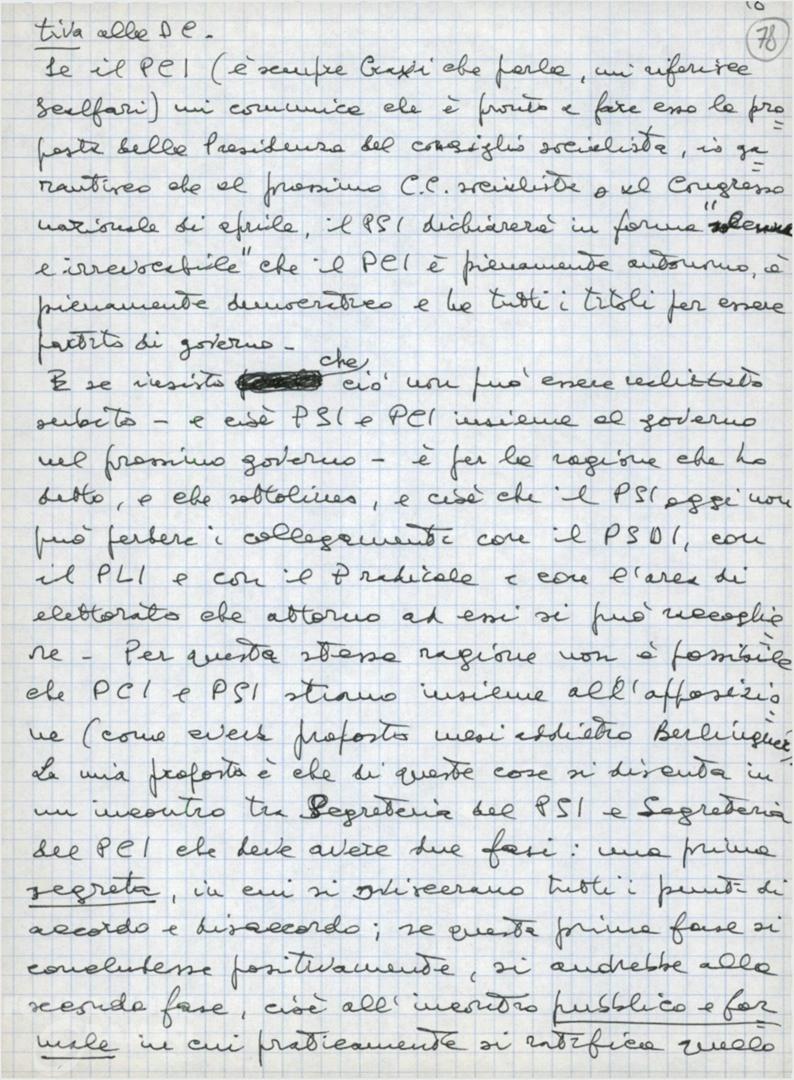 10
78
tiva alla DC.
Se il PCI (è sempre Craxi che parla, mi riferisce
Scalfari) mi comunica che è pronto a fare esso la pro=
posta della Presidenza del consiglio socialista, io ga=
rantisco che al prossimo C.C. socialista o al Congresso
nazionale di aprile, il PSI dichiarerà in forma "solenne
e irrevocabile" che il PCI è pienamente autonomo, è
pienamente democratico e ha tutti i titoli per essere
partito di governo -
E se insisto che ciò non può essere realizzato
subito - e cioè PSI e PCI insieme al governo
nel prossimo governo - è per la ragione che ho
detto, e che sottolineo, e cioè che il PSI oggi non
può perdere i collegamenti con il PSDI, con
il PLI e con il P radicale e con l'area di
elettorato che attorno ad essi si può raccoglie=
re - Per questa stessa ragione non è possibile
che PCI e PSI stiano insieme all'opposizio=
ne (come aveva proposto mesi addietro Berlinguer).
La mia proposta è che di queste cose si discuta in
un incontro tra Segreteria del PSI e Segreteria
del PCI che deve avere due fasi: una prima
segreta, in cui si sviscerano tutti i punti di
accordo e disaccordo; se questa prima fase si
concludesse positivamente, si andrebbe alla
seconda fase, cioè all'incontro pubblico e for=
male in cui praticamente si ratifica quello